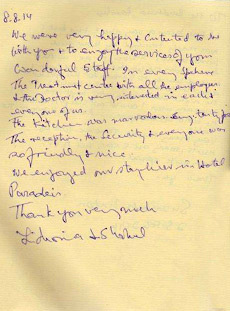 8.8.14
We were very happy & contented to be
with you & to enjoy the services of your
wonderful staff. In every sphere.
The Treatment centre with all the employees
& the Doctor is very interested in each &
everyone of us.
The kitchen was marvelous &
The reception, the Security & everyone was
so friendly & nice.
We enjoyed our stay here in Hotel
Paradeis.
Thank you very much